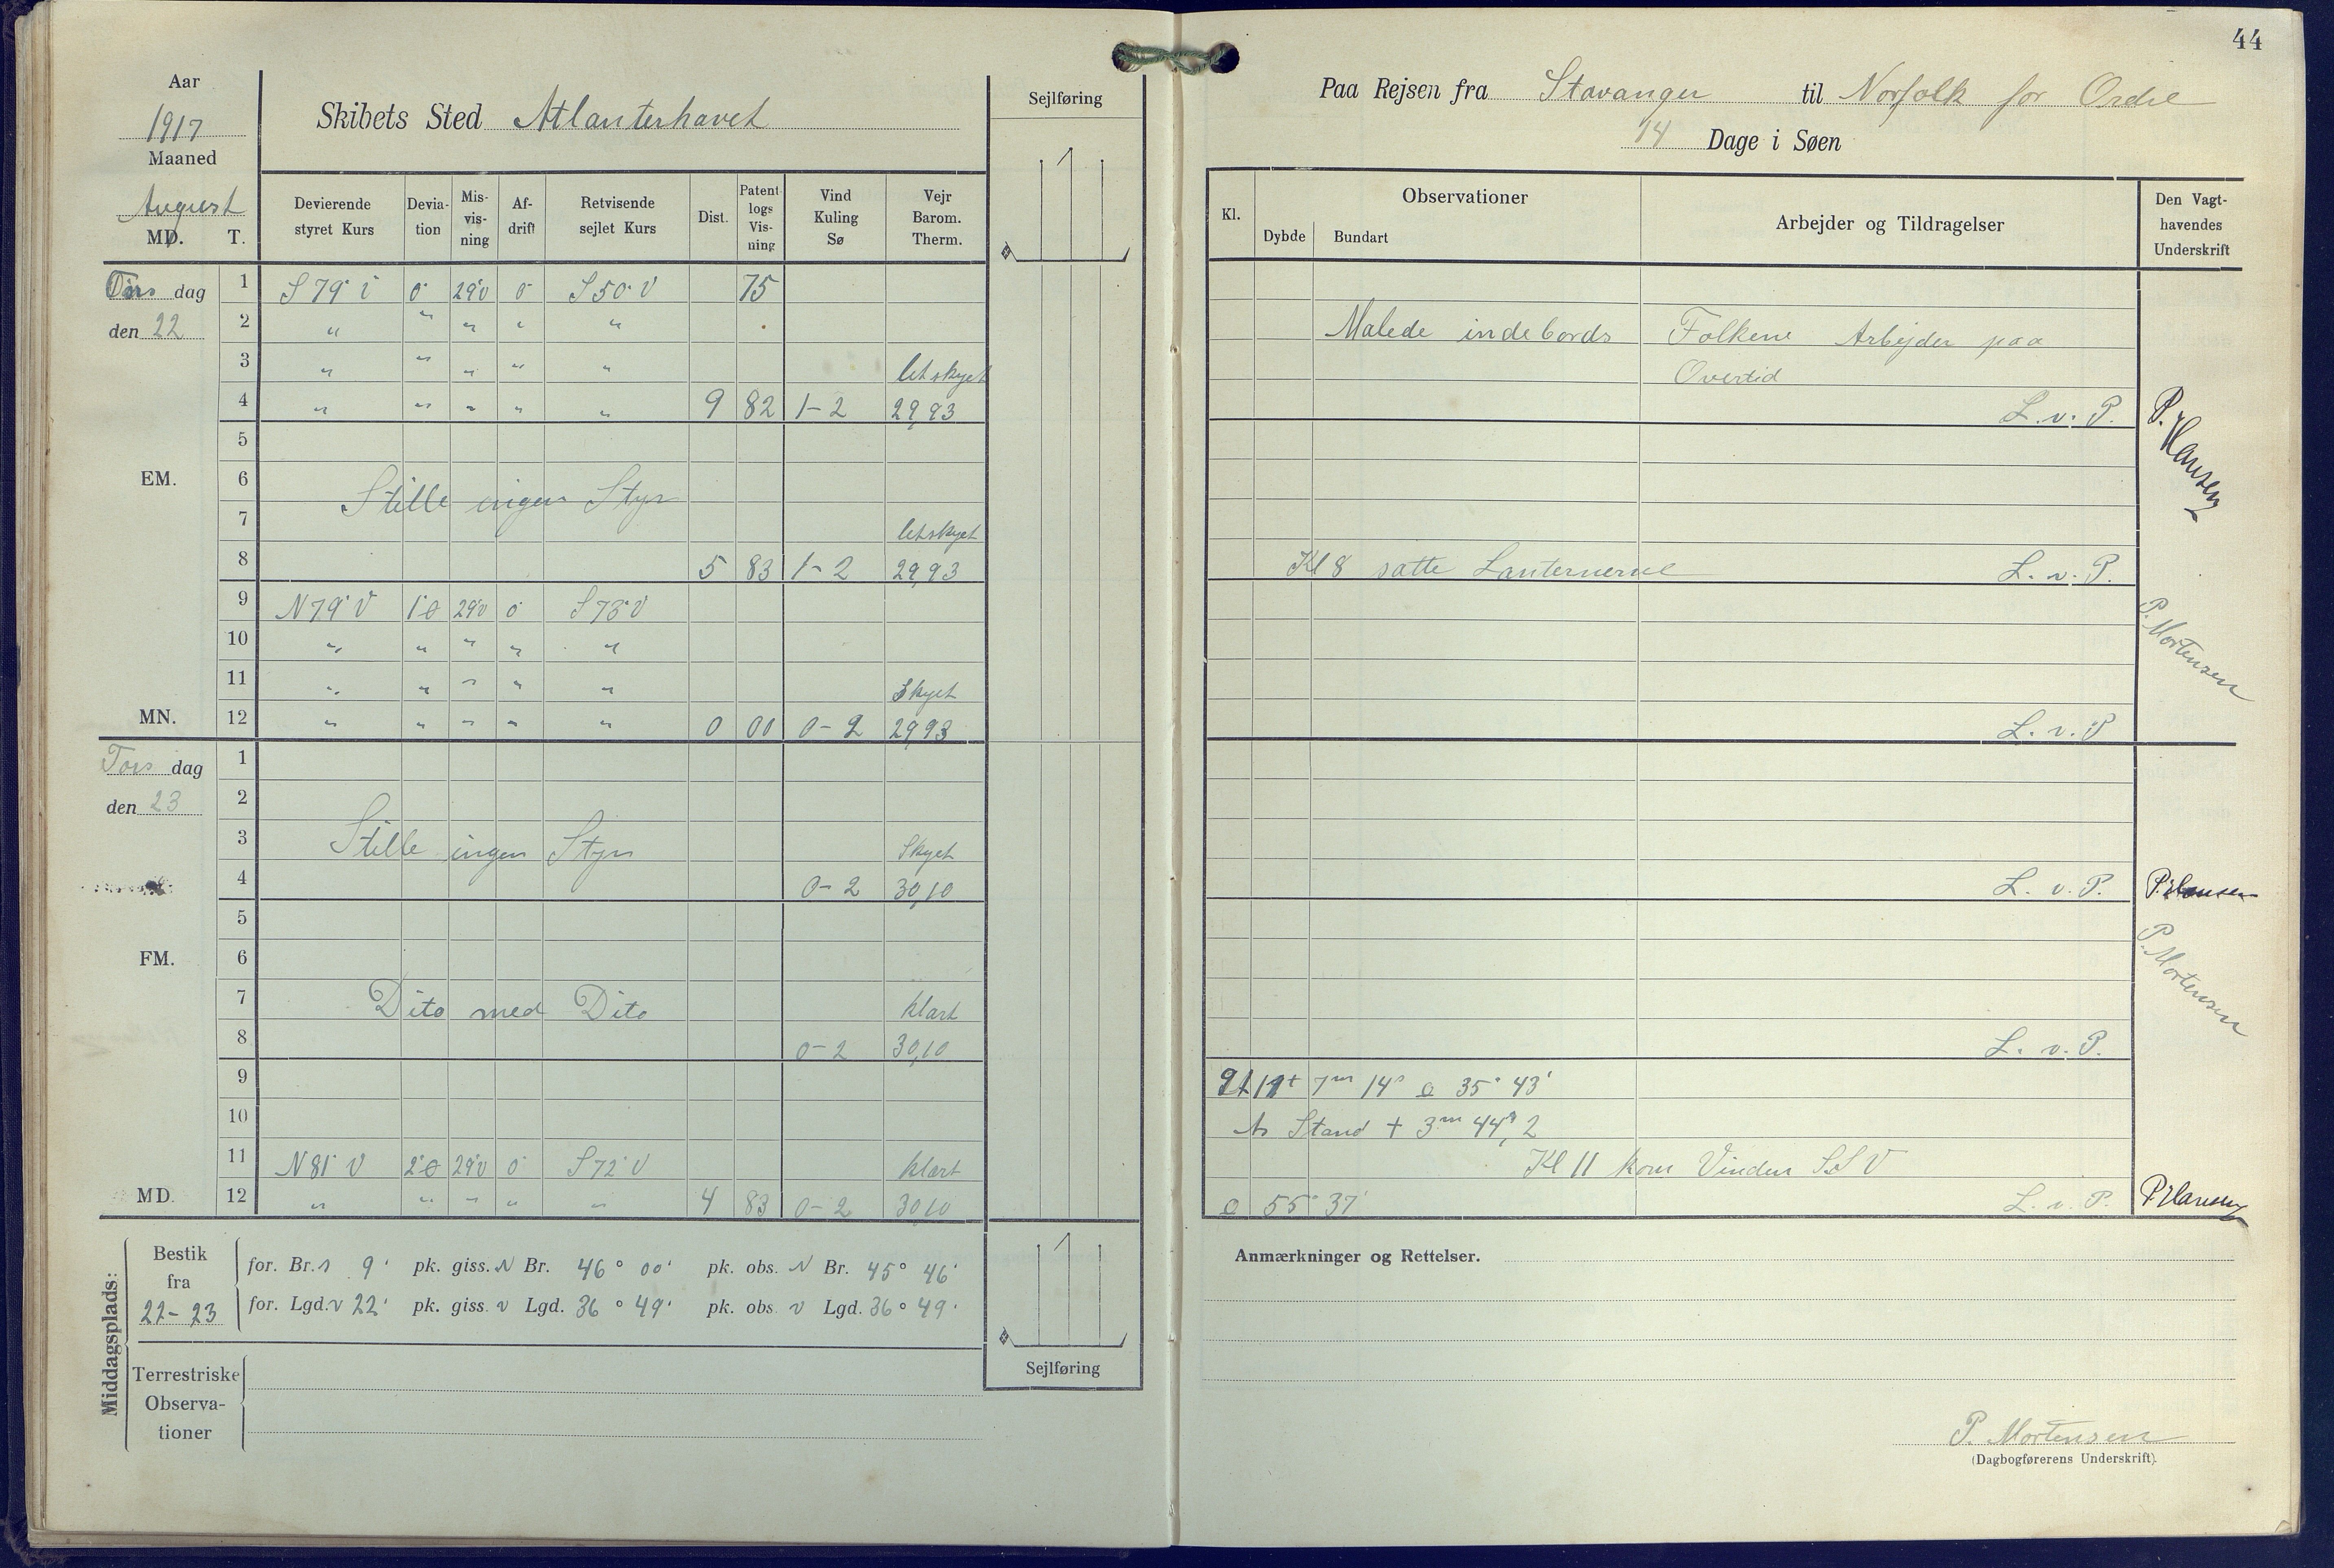 44
Aar
1917
Maaned
August
MD. T.
Skibets Sted Atlanterhavet
Sejlføring
Devierende styret Kurs
Devia-tion
Mis-vis-ning
Af-drift
Retvisende sejlet Kurs
Dist.
Patent-logs Vis-ning
Vind Kuling Sø
Vejr Barom. Therm.
dag 1 S 79° 0° 29°V 0° S 50° V 75
den 22 2 " " " " "
3 " " " " " letskyet
4 " " " " " 9 82 1-2 29,93
5
EM. 6
Stille ingen Styr
7 letskyet
8 5 83 1-2 29,93
9 N 79° V 1°Ø 29°V 0° S 73° V
10 " " " " "
11 " " " " " Skyet
MN. 12 " " " " " 0 00 0-2 29,93
Tors dag 1
den 23 2
3 Stille ingen Styr Skyet
4 0-2 30,10
5
FM. 6
7 Dito med Dito klart
8 0-2 30,10
9
10
11 N 81° V 2°Ø 29°V 0° S 72° V klart
MD. 12 " " " " " 4 83 0-2 30,10
Middagsplads:
Bestik fra 22-23
for. Br. S 9' pk. giss. N Br. 46° 00' pk. obs. N Br. 45° 46'
for. Lgd. V 22' pk. giss. V Lgd. 36° 49' pk. obs. V Lgd. 36° 49'
Terrestriske Observa-tioner
Sejlføring
Paa Rejsen fra Stavanger til Norfolk for Ordre
14 Dage i Søen
Kl.
Observationer
Dybde Bundart
Arbejder og Tildragelser
Den Vagt-havendes Underskrift
Malede indebords Folkene Arbejder paa
Overtid
L. v. P. P. Hansen
Kl 8 satte Lanternerne L. v. P.
P. Mortensen
L. v. P.
L. v. P. P. Hansen
P. Mortensen
L. v. P.
7m 14s 35° 43'
Stand + 3m 44s,2
Kl 11 kom Vinden SSV
55° 37' L. v. P. P Hansen
Anmærkninger og Rettelser.
P. Mortensen
(Dagbogførerens Underskrift).